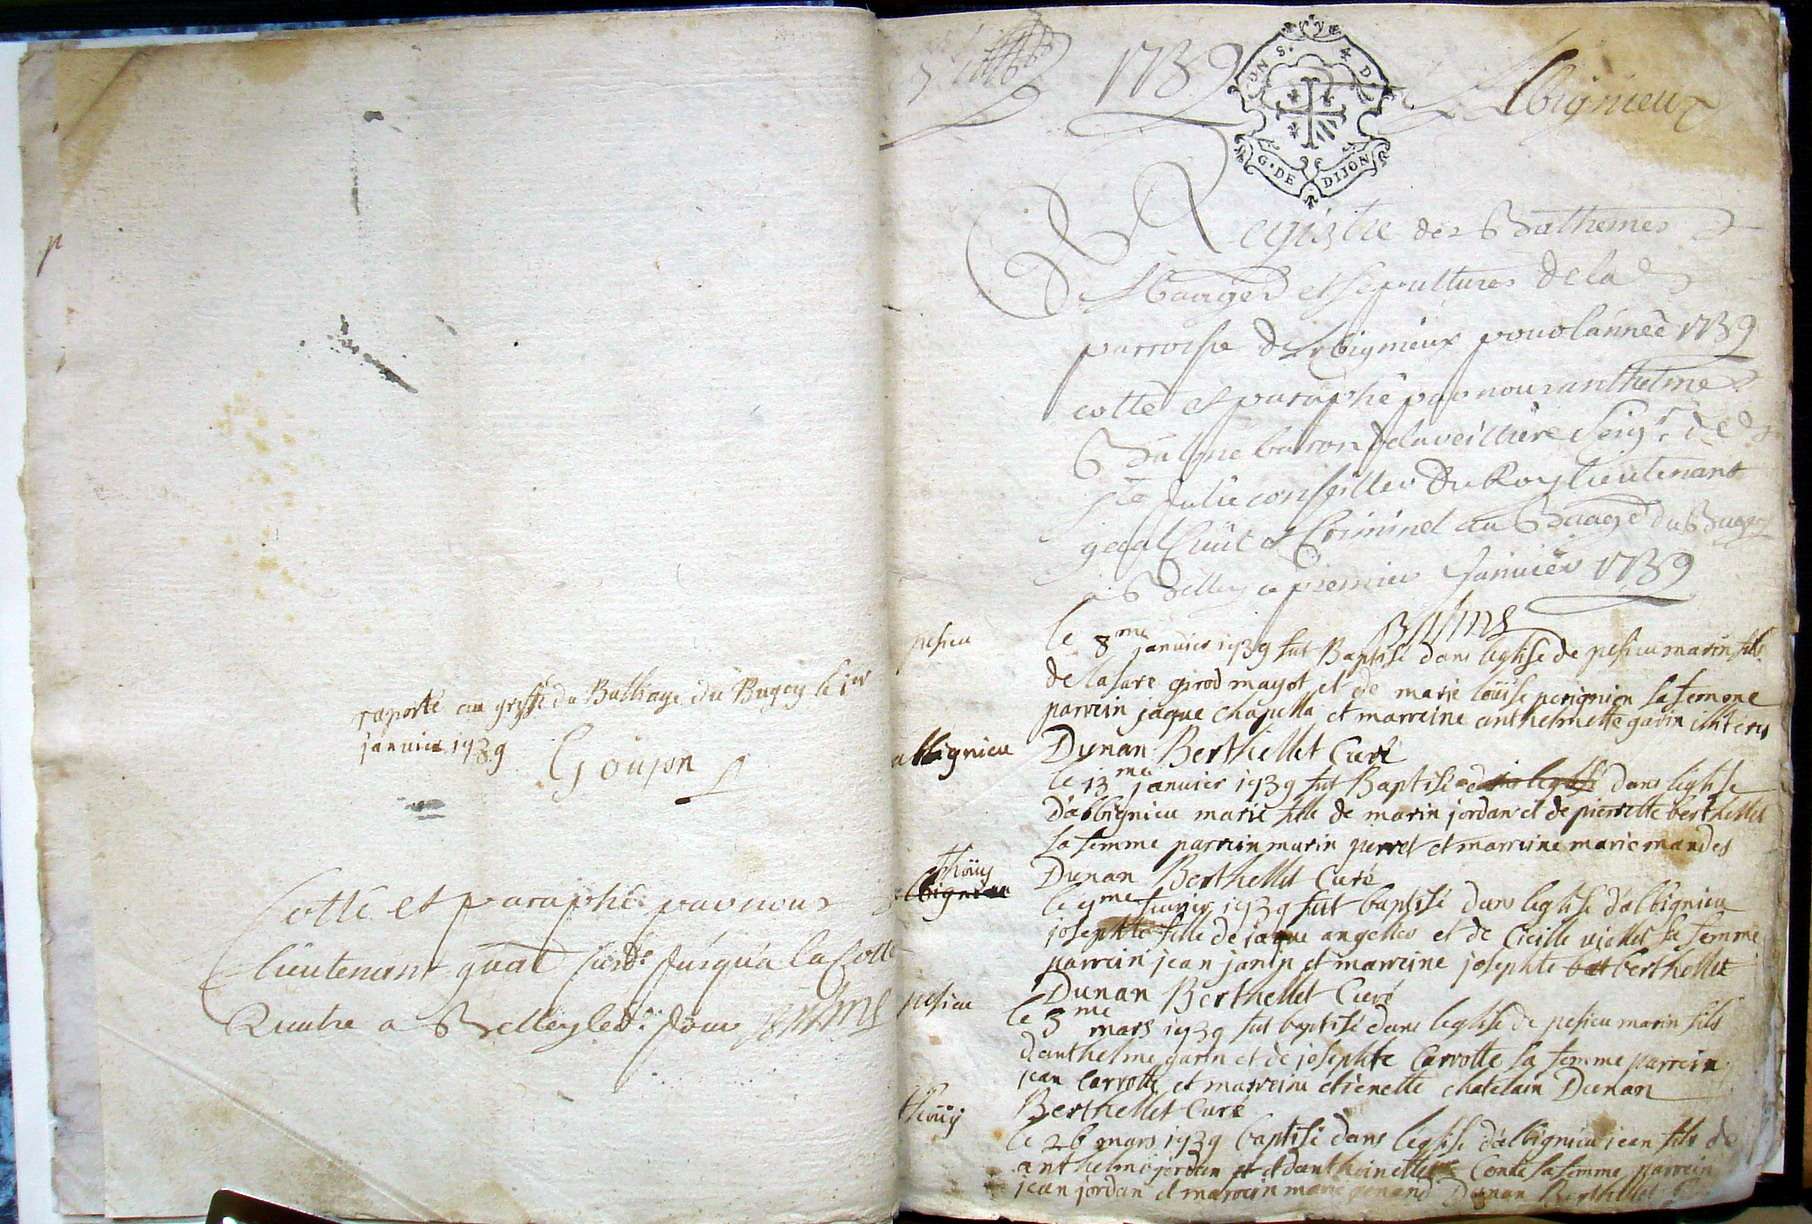 raporté au greffe du Bailliage du Bugey le 1er
janvier 1739
Goujon
Cotté et paraphé par nous
lieutenant gnal susdt jusqua la Cotte
Quatre a Belley led. jour Balme
1739
Albignieux
CON S. 4 D
G. DE DIJON
Registre des Bathemes
Mariages et sepultures de la
parroisse d'Albignieux pour lannee 1739
cotté et paraphé par nous anthelme
Balme baron de la veilliere Seigr de
Ste Julie conseiller Du Roy lieutenant
gnal Civil et Criminel au Bailliage du Bugey
a Belley ce premier Janvier 1739
Balme
pesieu
le 8me janvier 1739 fut Baptisé dans leglise de pesieu marin fils
de girod mayot et de marie louise perignion sa femme
parrein jaque chapella et marreine anthelmette garin
Dunan Berthellet Curé
albignieu
le 13me janvier 1739 fut Baptisée dans leglise dans leglise
d'albignieu marie fille de marin jordan et de pierrette berthellet
sa femme parrein marin perret et marreine marie mandes
Dunan Berthellet Curé
thoüy
albignieu
le 9me fevrier 1739 fut baptisé dans leglise d'albignieu
josephte fille de jaque angellos et de Cicille viollet sa femme
parrein jean janin et marreine josephte bert berthellet
Dunan Berthellet Curé
pesieu
le 3me mars 1739 fut baptisé dans leglise de pesieu marin fils
d'anthelme garin et de josephte Carrotte sa femme parrein
jean Carrotte et marreine etienette chatelain Dunan
Berthellet Curé
thoüy
le 26 mars 1739 baptisé dans leglise d'albignieu jean fils de
anthelme jordan et d'anthoinette Conte sa femme parrein
jean jordan et marrein marie penand Dunan Berthellet